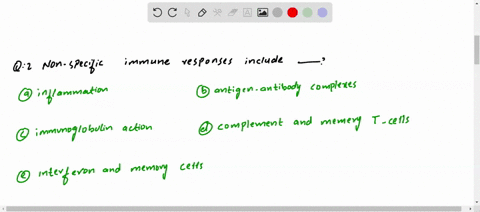 Q:2 Non-specific immune responses include ___?
(a) inflammation
(b) antigen-antibody complexes
(c) immunoglobulin action
(d) complement and memery T-cells
(e) interferon and memory cells